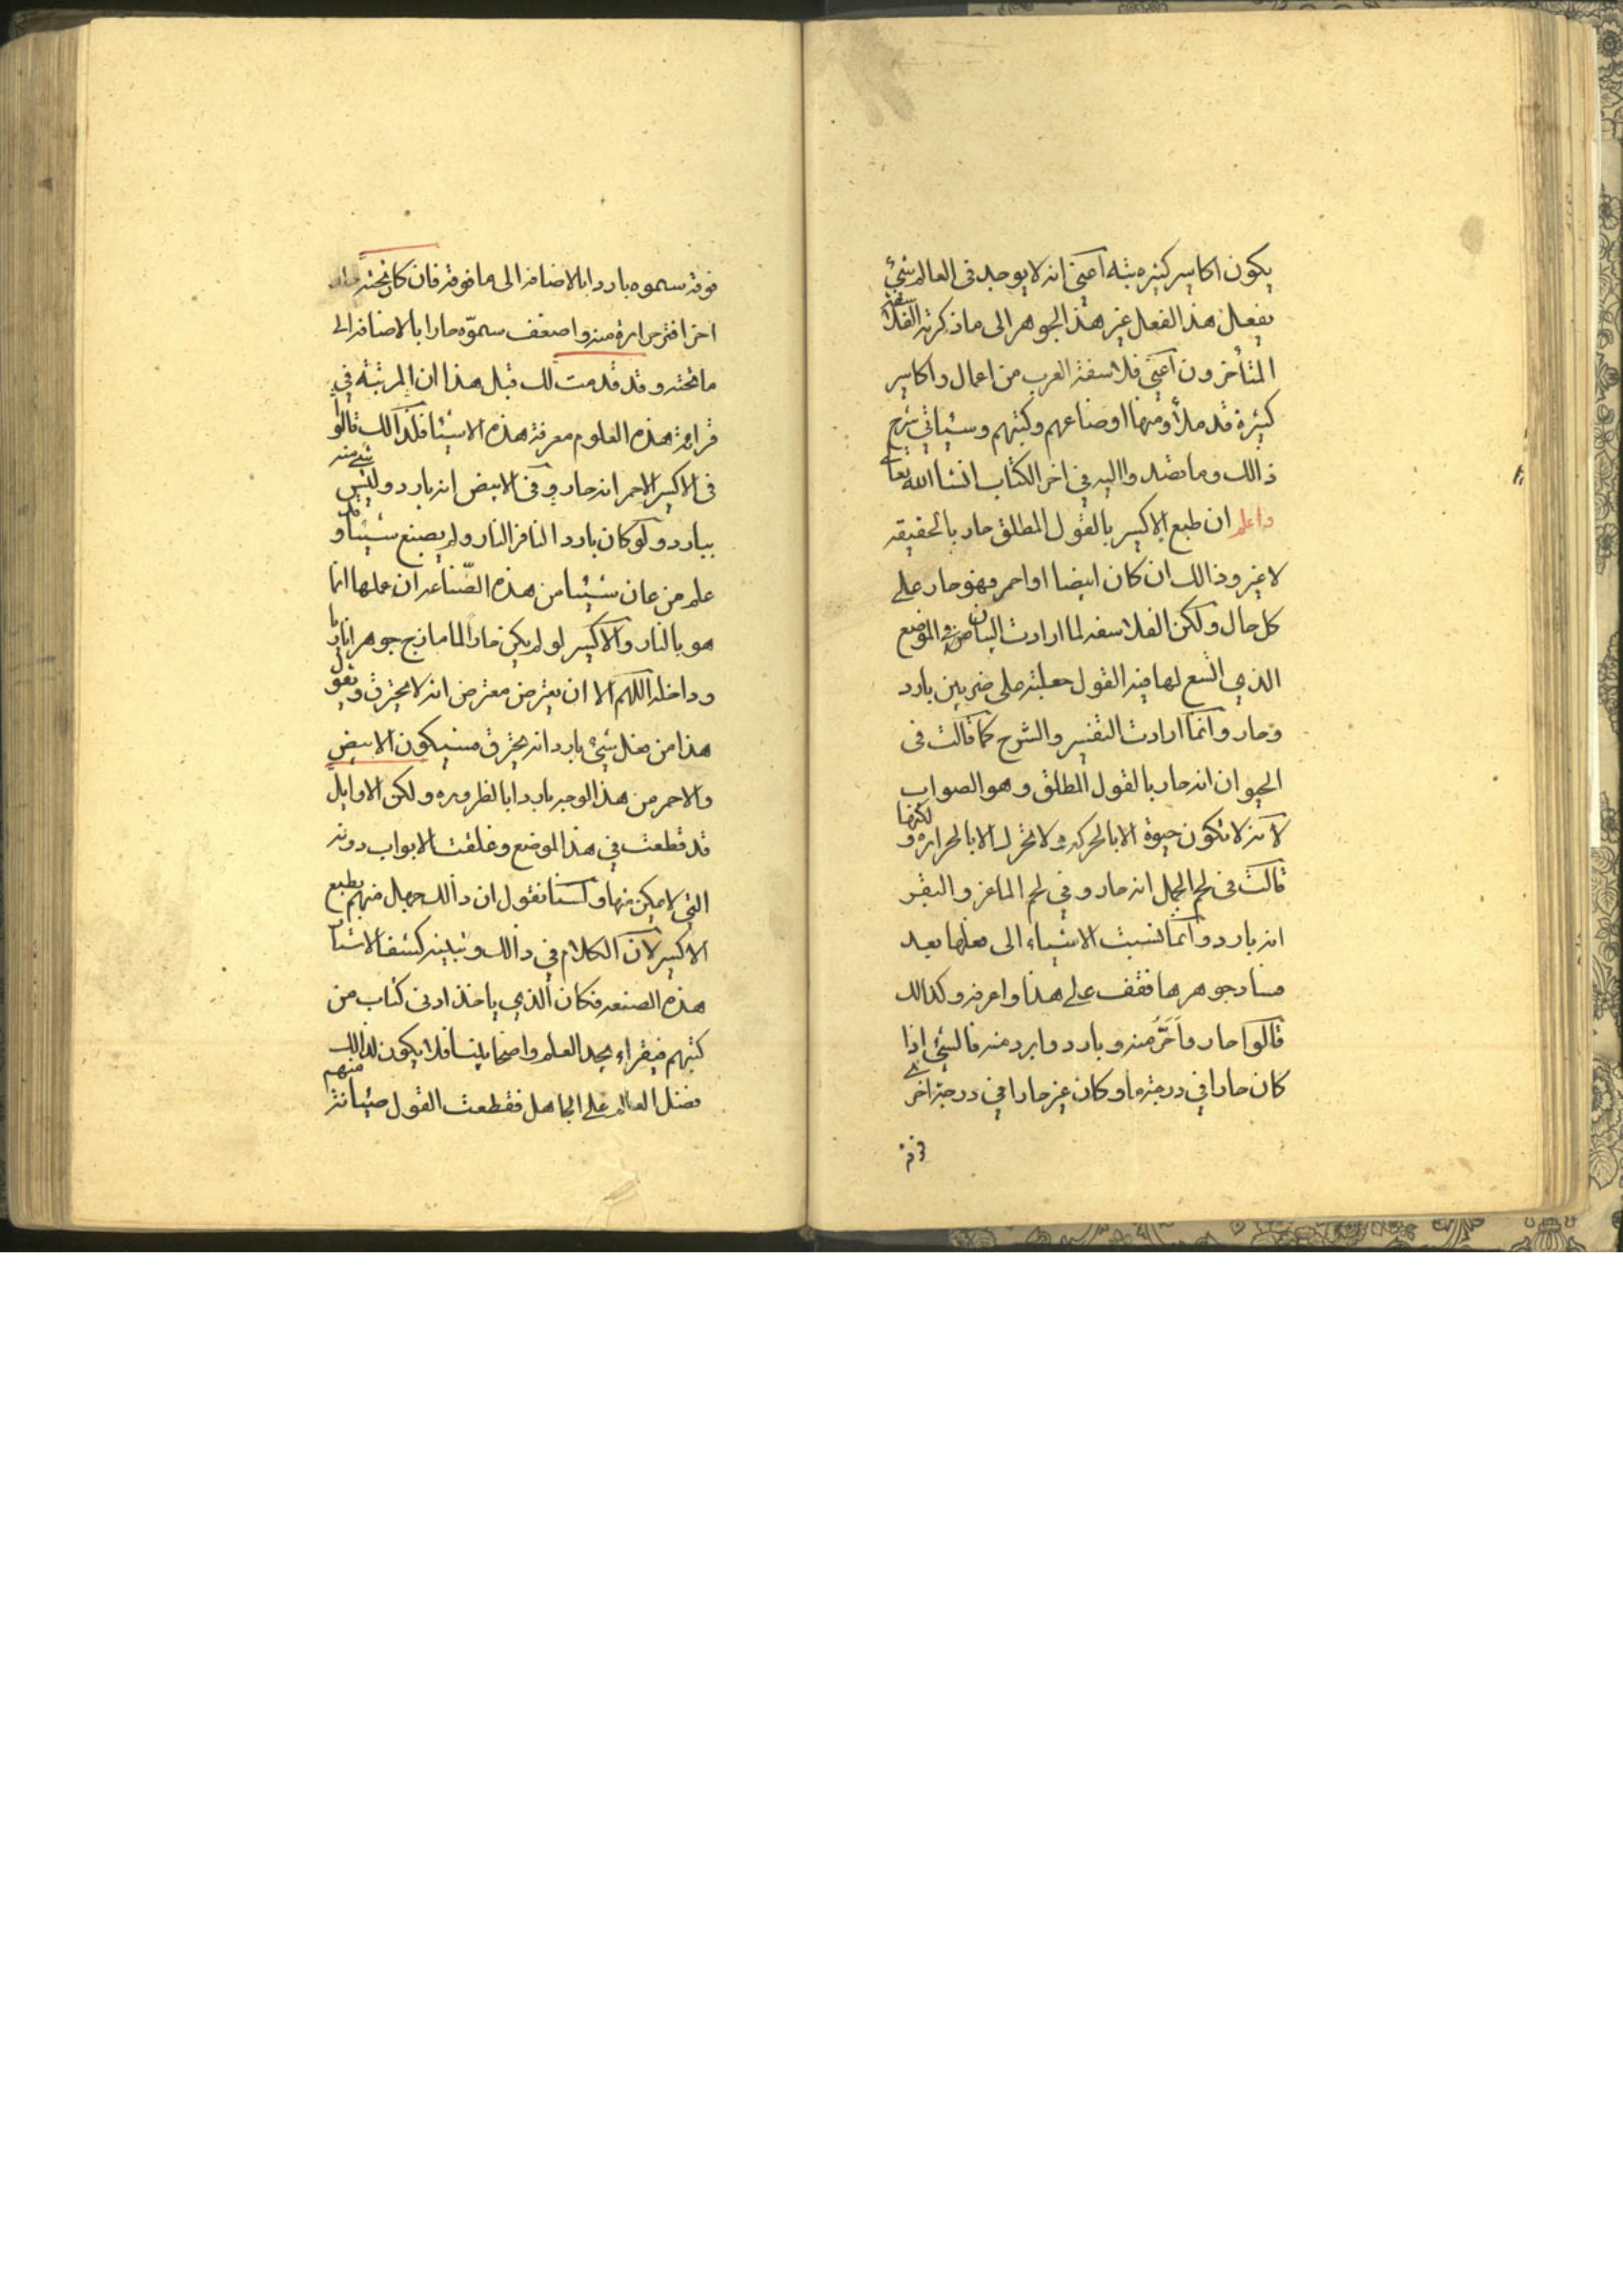 يكون اكاسير كثيره بتة اعني انه لا يوجد في العالم شيئ
يفعل هذا الفعل غير هذا الجوهر الى ما ذكرته الفلاسفة
المتأخرون اعني فلاسفة العرب من اعمال واكاسير
كثيرة قد ملأو منها اوضاعهم وكتبهم وسيئاتي شرح
ذالك وما قصدوا اليه في اخر الكتاب انشا الله تعا
واعلم ان طبع الاكسير بالقول المطلق حار بالحقيقه
لا غير وذالك ان كان ابيضا او احمر فهو حار على
كل حال ولكن الفلاسفه لما ارادت البيان في الموضع
الذي اتسع لها فيه القول جعلته على ضربين بارد
وحار وانما ارادت التفسير والشرح كما قالت في
الحيوان انه حار بالقول المطلق وهو الصواب
لانه لا تكون حيوة الا بالحركه ولا تحرك الا بالحراره ولكنها
قالت في لحم الجمل انه حار وفي لحم الماعز والبقر
انه بارد وانما نسبت الاشياء الى فعلها بعد
فساد جوهرها فقف على هذا واعرفه وكذالك
قالوا حار واَحَرُّ منه وبارد وابرد منه فالشيئ اذا
كان حارا في درجة ما وكان غير حارا في درجة اخرى
فوقه
فوقه سموه باردا بالاضافه الى ما فوقه فان كان تحته
اخرا فتر حرارة منه واضعف سموّه حارا بالاضافه الى
ما تحته وقد قدمت لك قبل هذا ان المرتبة في
قرائة هذه العلوم معرفة هذه الاشيا فلذالك قالوا
في الاكسير الاحمر انه حار وفي الابيض انه بارد وليس شيئ منه
ببارد ولو كان باردا لنافر النار ولم يصبغ شيئا وقد
علم من عان شيئا من هذه الصّناعه ان عملها انما
هو بالنار والاكسير لو لم يكن حارا لما مازج جوهرا ناريا
وداخله اللهم الا ان يعترض معترض انه لا يحترق ويقول
هذا من فعل شيئ بارد انه يحترق فسيكون الابيض
والاحمر من هذا الوجه باردا بالظروره ولكن الاوايل
قد قطعت في هذا الموضع وغلقت الابواب دونه
التي لا يمكن منها ولسنا نقول ان ذالك جهل منهم بطبع
الاكسير لان الكلام في ذالك وتبليغه كشفا لاشيا
هذه الصنعه فكان الذي ياخذ ادنى كتاب من
كتبهم فيقراء يجد العلم واضحا بيننا فلا يكون لذالك
فضل العالم على الجاهل فقطعت القول صيانة منهم